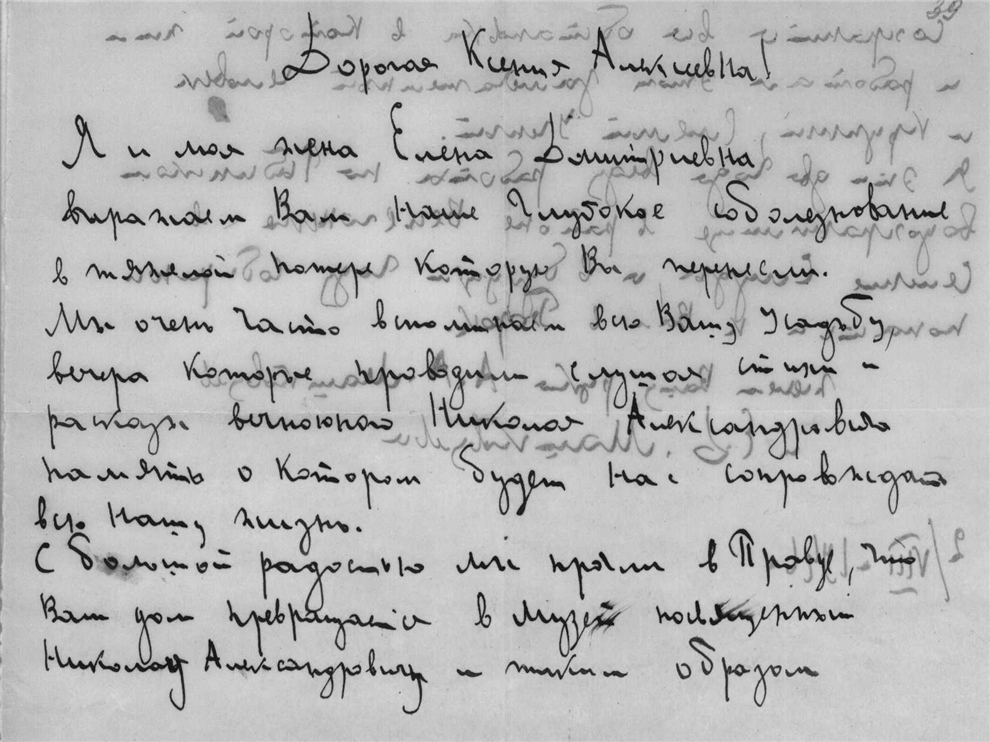 Дорогая Ксения Алексеевна!
Я и моя жена Елена Дмитриевна
выражаем Вам наше глубокое соболезнование
в тяжелой потере которую Вы перенесли.
Мы очень часто вспоминаем всю Вашу усадьбу,
вечера которые проводили слушая стихи и
рассказы вечноюного Николая Александровича
память о котором будет нас сопровождать
всю нашу жизнь.
С большой радостью мы прочли в Правде, что
Ваш дом превращается в музей посвященный
Николаю Александровичу и таким образом